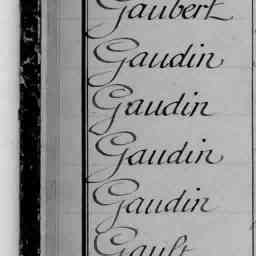 Gaubert
Gaudin
Gaudin
Gaudin
Gaudin
Gault